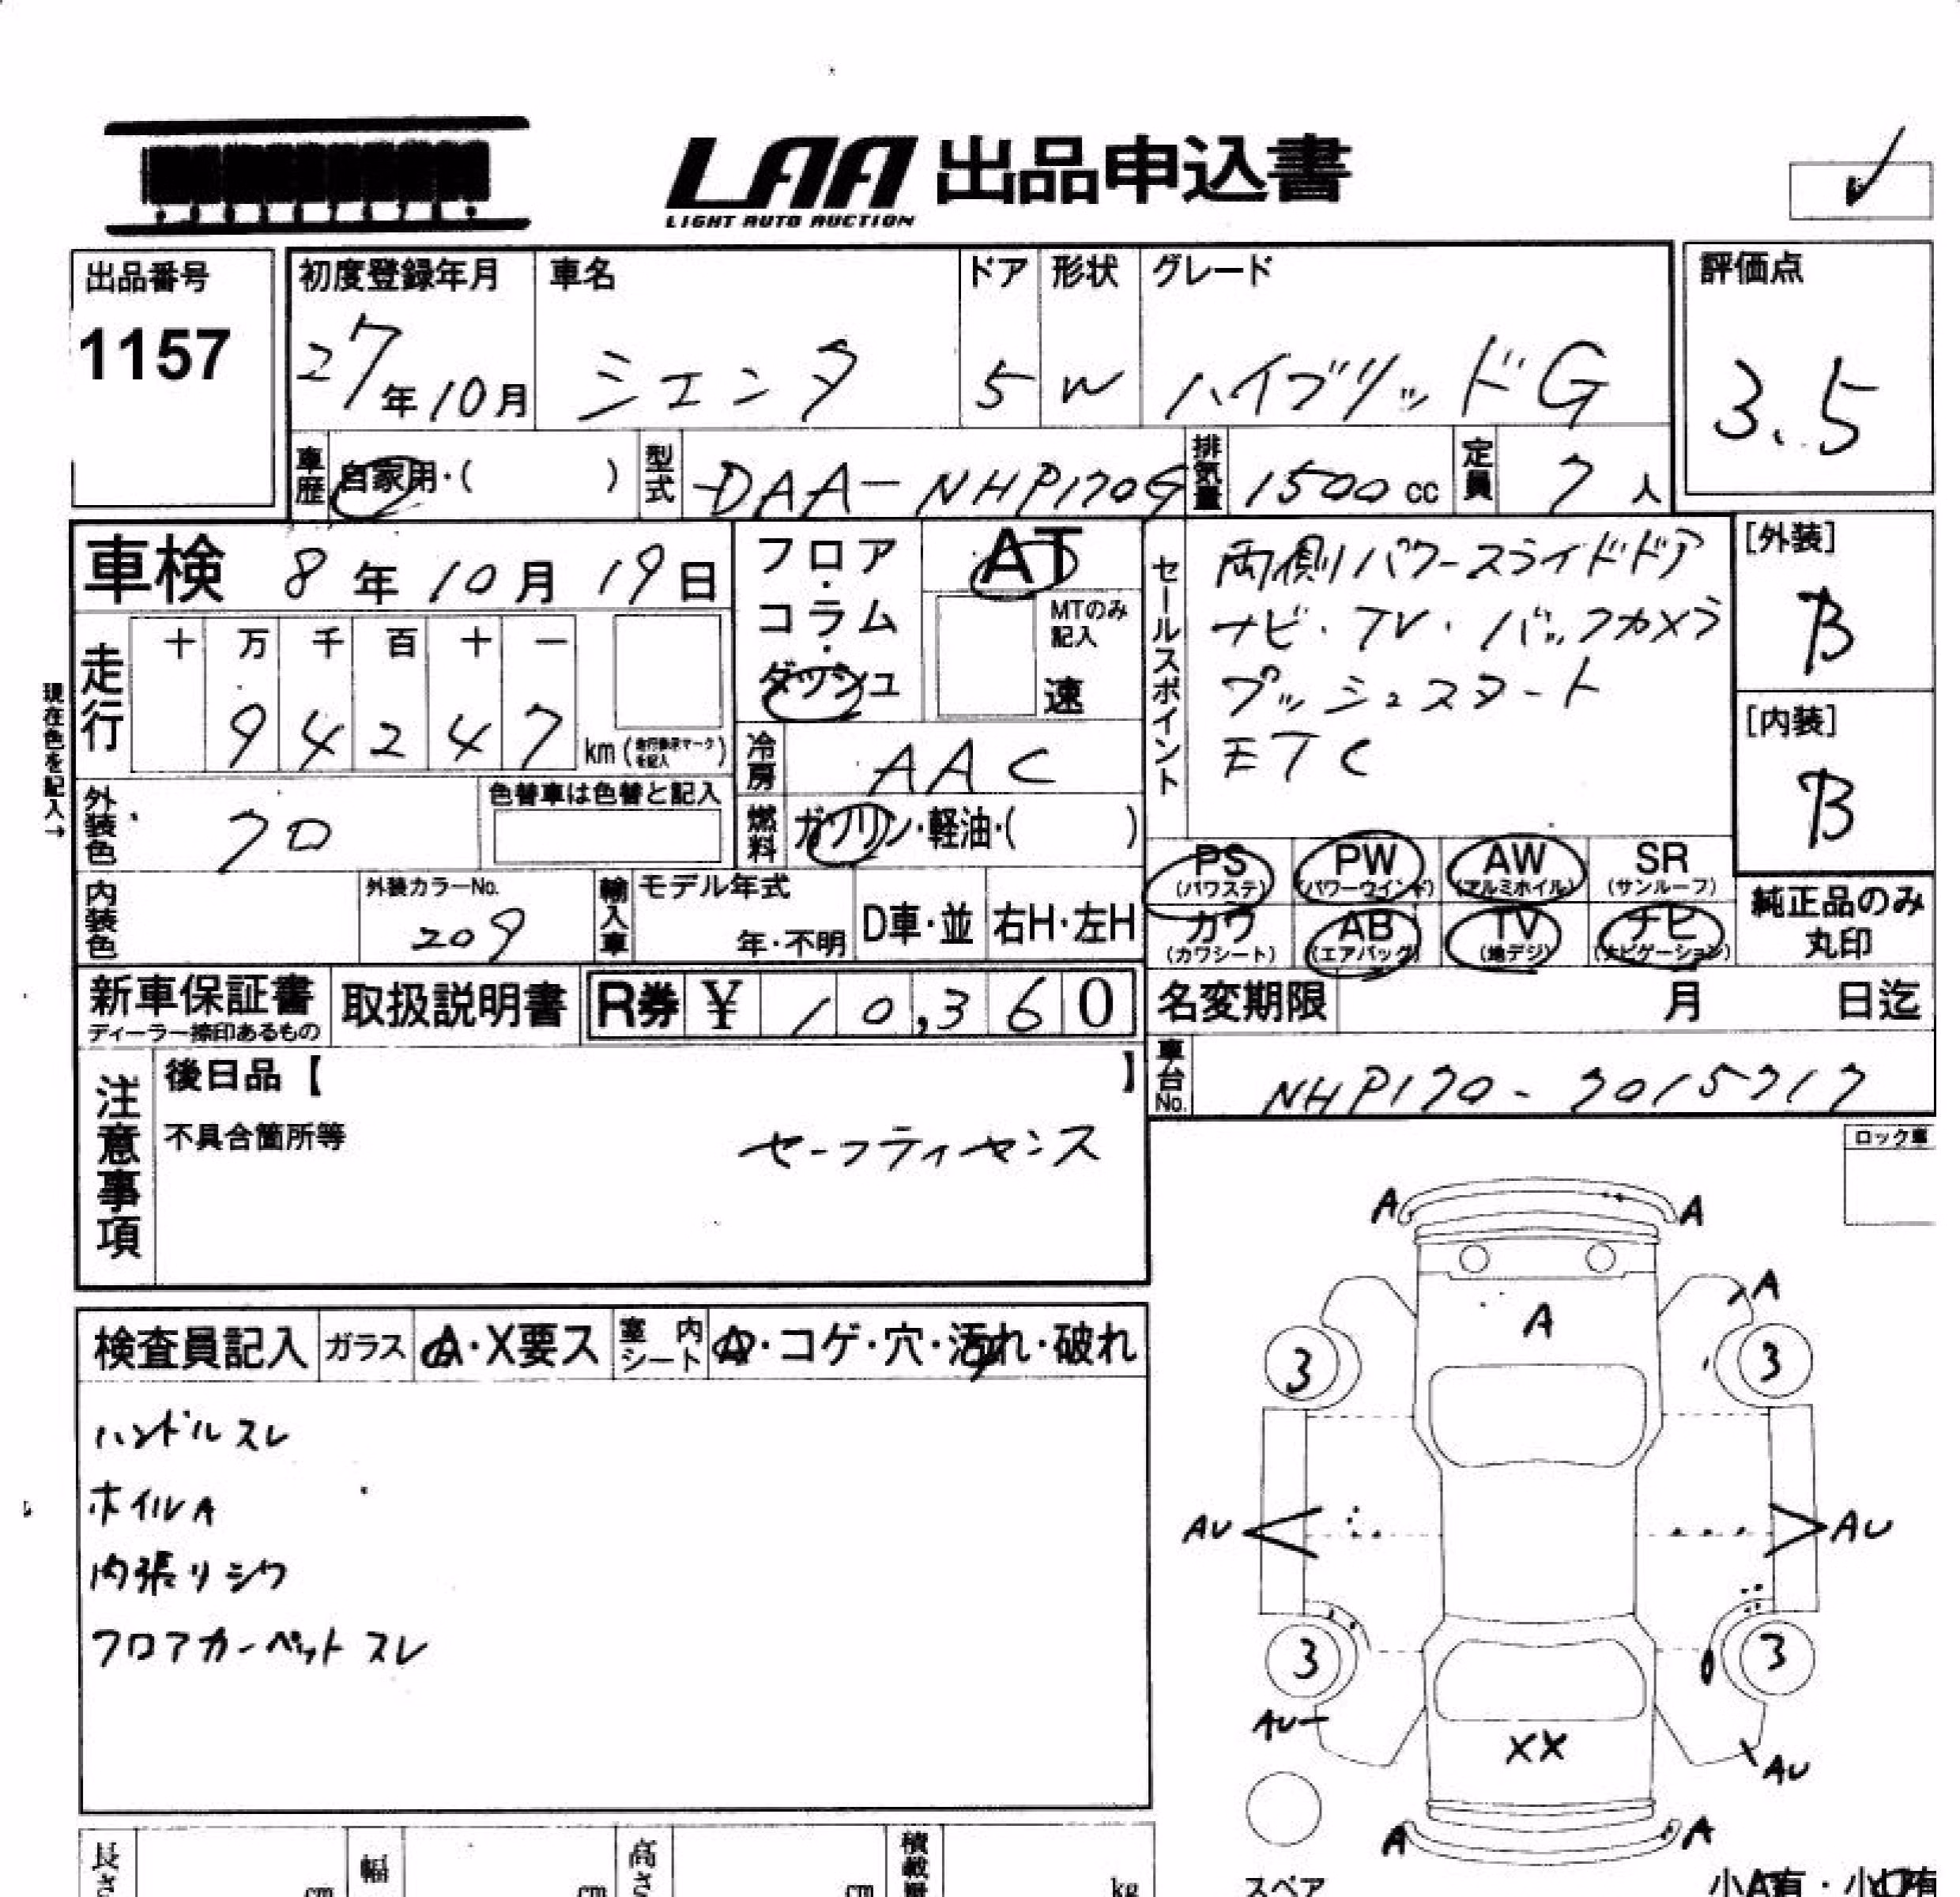 LAA 出品申込書
LIGHT AUTO AUCTION
出品番号
1157
初度登録年月
27年10月
車名
シエンタ
ドア
5
形状
W
グレード
ハイブリッドG
評価点
3.5
車歴
自家用・( )
型式
DAA-NHP170G
排気量
1500cc
定員
7人
車検 8年10月19日
フロア・コラム・ダッシュ
AT
MTのみ記入
速
セールスポイント
両側パワースライドドア
ナビ・TV・バックカメラ
プッシュスタート
ETC
[外装]
B
[内装]
B
現在色を記入→
走行
十 万 千 百 十 一
9 4 2 4 7
km(走行表示マークを記入)
冷房
AAC
燃料
ガソリン・軽油・( )
外装色
クロ
色替車は色替と記入
内装色
外装カラーNo.
209
輸入車
モデル年式
年・不明
D車・並
右H・左H
PS (パワステ)
PW (パワーウインド)
AW (アルミホイル)
SR (サンルーフ)
カワ (カワシート)
AB (エアバッグ)
TV (地デジ)
ナビ (ナビゲーション)
純正品のみ
丸印
新車保証書
ディーラー捺印あるもの
取扱説明書
R券 ¥ 10,360
名変期限 月 日迄
車台No.
NHP170-7015717
注意事項
後日品【 】
不具合箇所等
セーフティセンス
ロック車
検査員記入
ガラス
A・X要ス
室内シート
A・コゲ・穴・汚れ・破れ
ハンドルスレ
ホイルA
内張りシワ
フロアカーペットスレ
A A
A
A
3 3
AU AU
3 3
AU
XX
AU
A A
スペア
長さ cm
幅 cm
高さ cm
積載量 kg